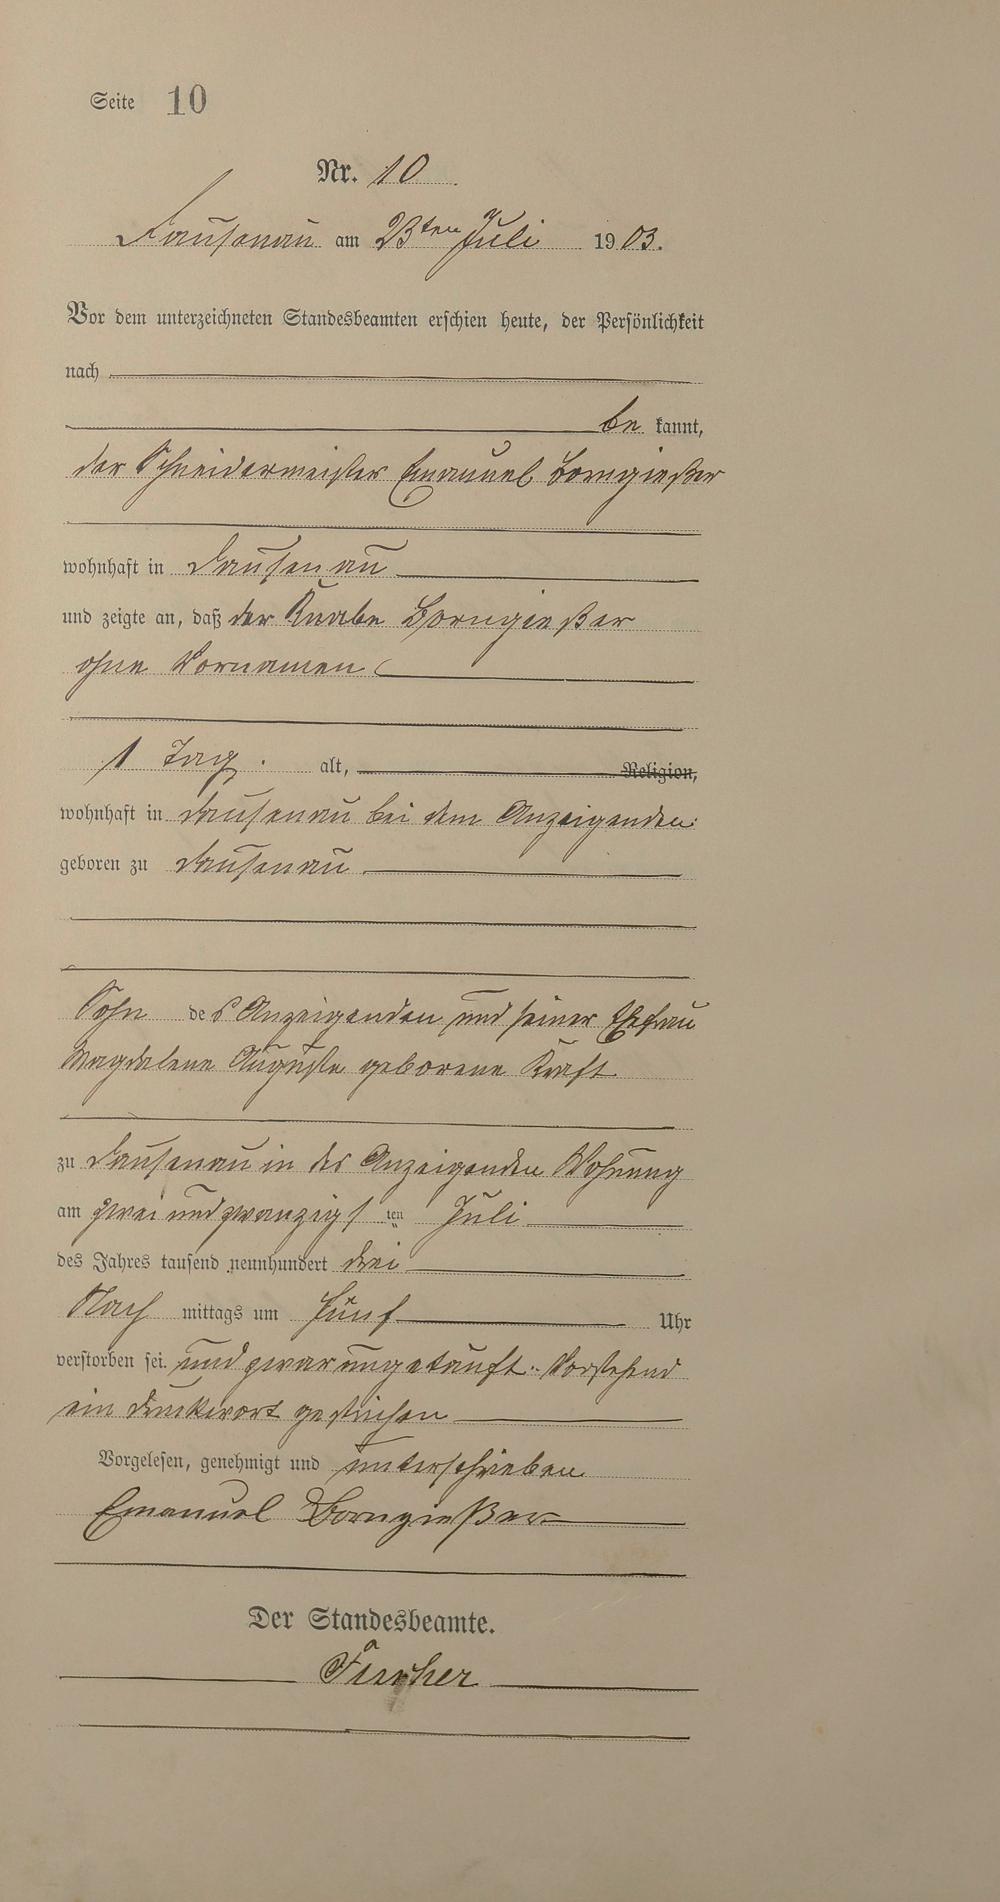 Seite 10
Nr. 10
Dausenau am 23ten Juli 1903.
Vor dem unterzeichneten Standesbeamten erschien heute, der Persönlichkeit
nach
be kannt,
der Schneidermeister Emanuel Borngießer
wohnhaft in Dausenau
und zeigte an, daß der Knabe Borngießer
ohne Vornamen
1 Tag alt, Religion,
wohnhaft in Dausenau bei dem Anzeigenden
geboren zu Dausenau
Sohn des Anzeigenden und seiner Ehefrau
Magdalene Auguste geborene Kraft
zu Dausenau in des Anzeigenden Wohnung
am zwei und zwanzigsten Juli
des Jahres tausend neunhundert drei
Nach mittags um fünf Uhr
verstorben sei und zwar ungetauft. Vorstehend
ein Druckwort gestrichen
Vorgelesen, genehmigt und unterschrieben
Emanuel Borngießer
Der Standesbeamte.